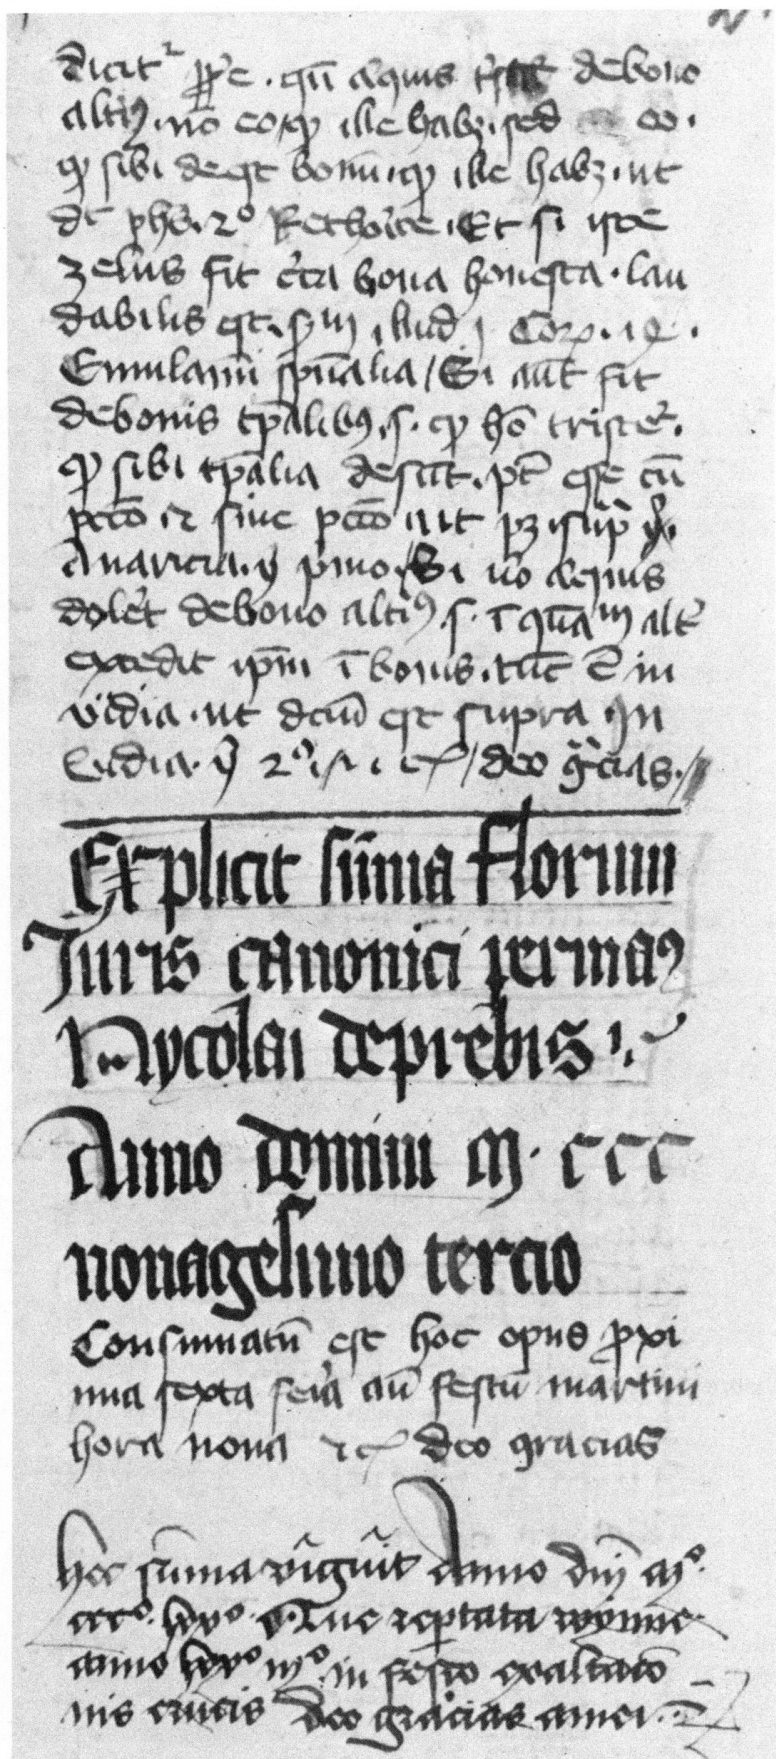 dicit² ꝓpͥe . qn̄ aliquis debono
altiꝰ . nō eo ꝙ ille habꝫ . sed eo .
ꝙ sibi deest bonū . ꝙ ille habꝫ . ut
dt phs̄ . 2º Rethorice . Et si iste
zelus sit cͥca bona honesta . lau
dabilis est . scd̄m illud j Corꝝ . 14 .
Emulam̄ sp̄ualia / Si aūt sit
debonis tp̄alibꝰ . s . ꝙ hō triste² .
ꝙ sibi tp̄alia desūt . pt̄ esse cū
pctō ⁊ sine pctō ut pꝫ . sup̄
Auaricia . § pͥmo . / Si uͦ aliquis
dolet debono altiꝰ . s . ī quātum alt²
excedit ip̄m ī bonis . tūc ē in
vidia . ut dcm̄ est supra In
uidia . § 2º / deo gͣcias . //
Explicit sūma florum
Juris canonici per maꝰ
Nycolai de
Anno domini M . CCC
nonagesimo tercio
Consummatū est hoc opus ꝓxi
ma sexta feria añ festū martini
hora nona ⁊cͣ deo gracias
hec sūma Anno dn̄i Mº .
cccº . lxxº
anno lxxº iijº . in festo exaltacō
nis crucis deo gracias amen .